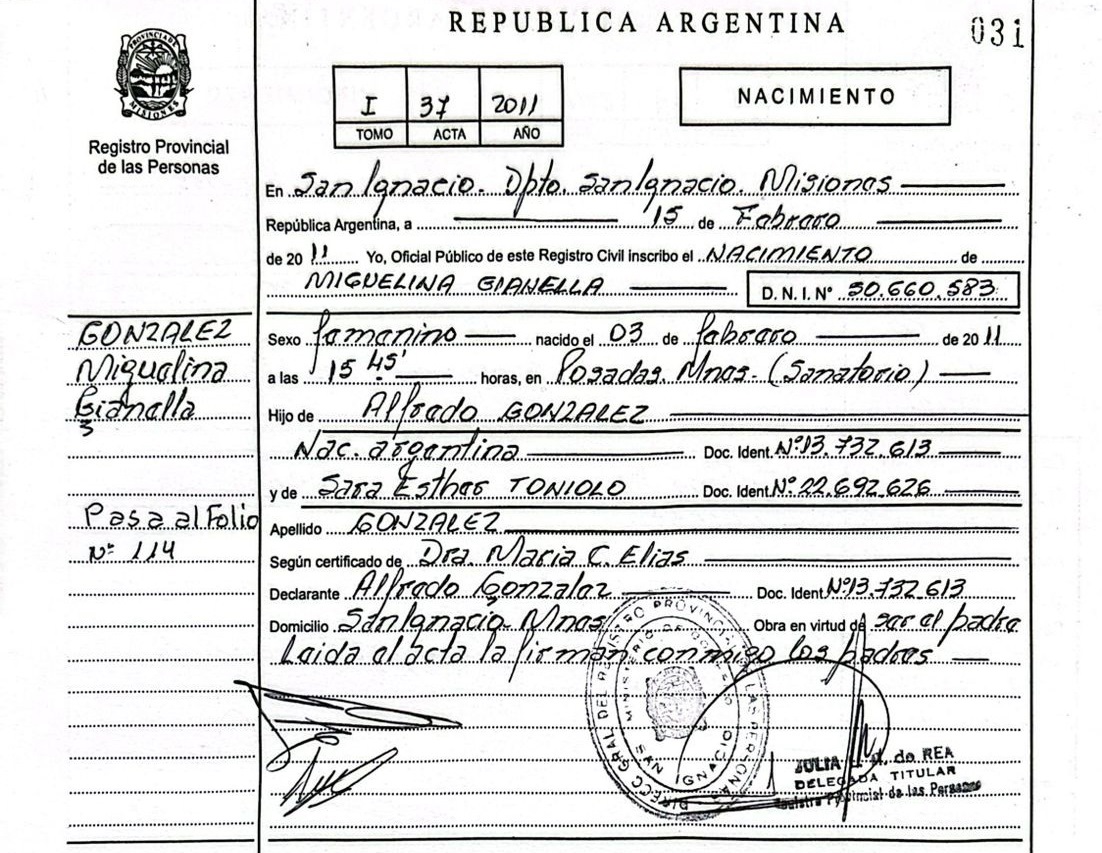 REPUBLICA ARGENTINA
031
PROVINCIA DE MISIONES
Registro Provincial
de las Personas
I 37 2011
TOMO ACTA AÑO
NACIMIENTO
En San Ignacio. Dpto. San Ignacio. Misiones
República Argentina, a 15 de Febrero
de 20 11 Yo, Oficial Público de este Registro Civil inscribo el NACIMIENTO de
MIGUELINA GIANELLA D.N.I. N° 50.660.583
GONZALEZ
Miguelina
Gianella
3
Sexo femenino nacido el 03 de febrero de 20 11
a las 15 45' horas, en Posadas. Mnes. (Sanatorio)
Hijo de Alfredo GONZALEZ
Nac. argentina Doc. Ident. N°13.732.613
y de Sara Esther TONIOLO Doc. Ident. N°22.692.626
Pasa al Folio
N° 114
Apellido GONZALEZ
Según certificado de Dra. Maria C. Elias
Declarante Alfredo Gonzalez Doc. Ident. N°13.732.613
Domicilio San Ignacio. Mnes Obra en virtud de ser el padre
Leida el acta la firman conmigo los padres
DIRECC. GRAL DEL REGISTRO PROVINCIAL DE LAS PERSONAS
MINISTERIO DE GOBIERNO
SAN IGNACIO
JULIA de REA
DELEGADA TITULAR
Registro Provincial de las Personas